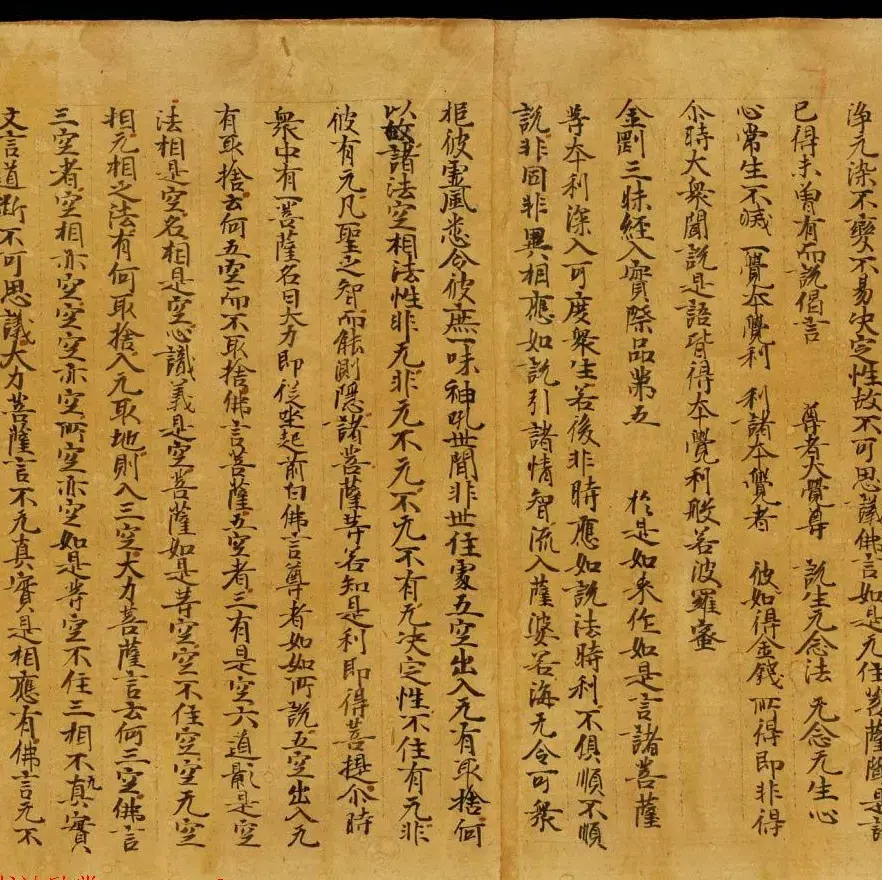 淨无染不變不易决定性故不可思議佛言如是无住菩薩聞是語
已得未曾有而說偈言　尊者大覺尊　說生无念法　无念无生心
心常生不滅　一覺夲覺利　利諸夲覺者　彼如得金錢　所得即非得
尒時大衆聞說是語皆得夲覺利般若波羅蜜
金剛三昧經入實際品第五　於是如來作如是言諸菩薩
等夲利深入可度衆生若後非時應如說法時利不俱順不順
說非同非異相應如說引諸情智流入薩婆若海无令可衆
挹彼虛風悉令彼庶一味神乳世間非世住處五空出入无有取捨何
以故諸法空相法性非无非无不无不无不有无决定性不住有无非
彼有无凡聖之智而能測隱諸菩薩等若知是利即得菩提尒時
衆中有一菩薩名曰大力即從坐起前白佛言尊者如如所說五空出入无
有取捨云何五空而不取捨佛言菩薩五空者三有是空六道影是空
法相是空名相是空心識義是空菩薩如是等空空不住空空无空
相无相之法有何取捨入无取地則入三空大力菩薩言云何三空佛言
三空者空相亦空空空亦空所空亦空如是等空不住三相不无真實
文言道斷不可思議大力菩薩言不无真實是相應有佛言无不